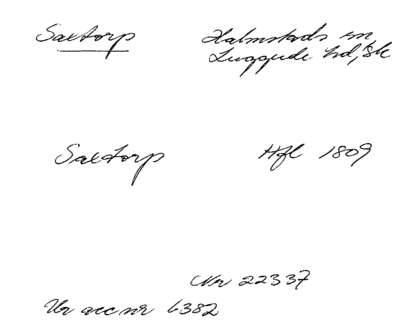 Saxtorp Halmstads sn
Luggude hd, Sk
Saxtorp Hfl 1809
Nr 22337
Ur acc nr 6382